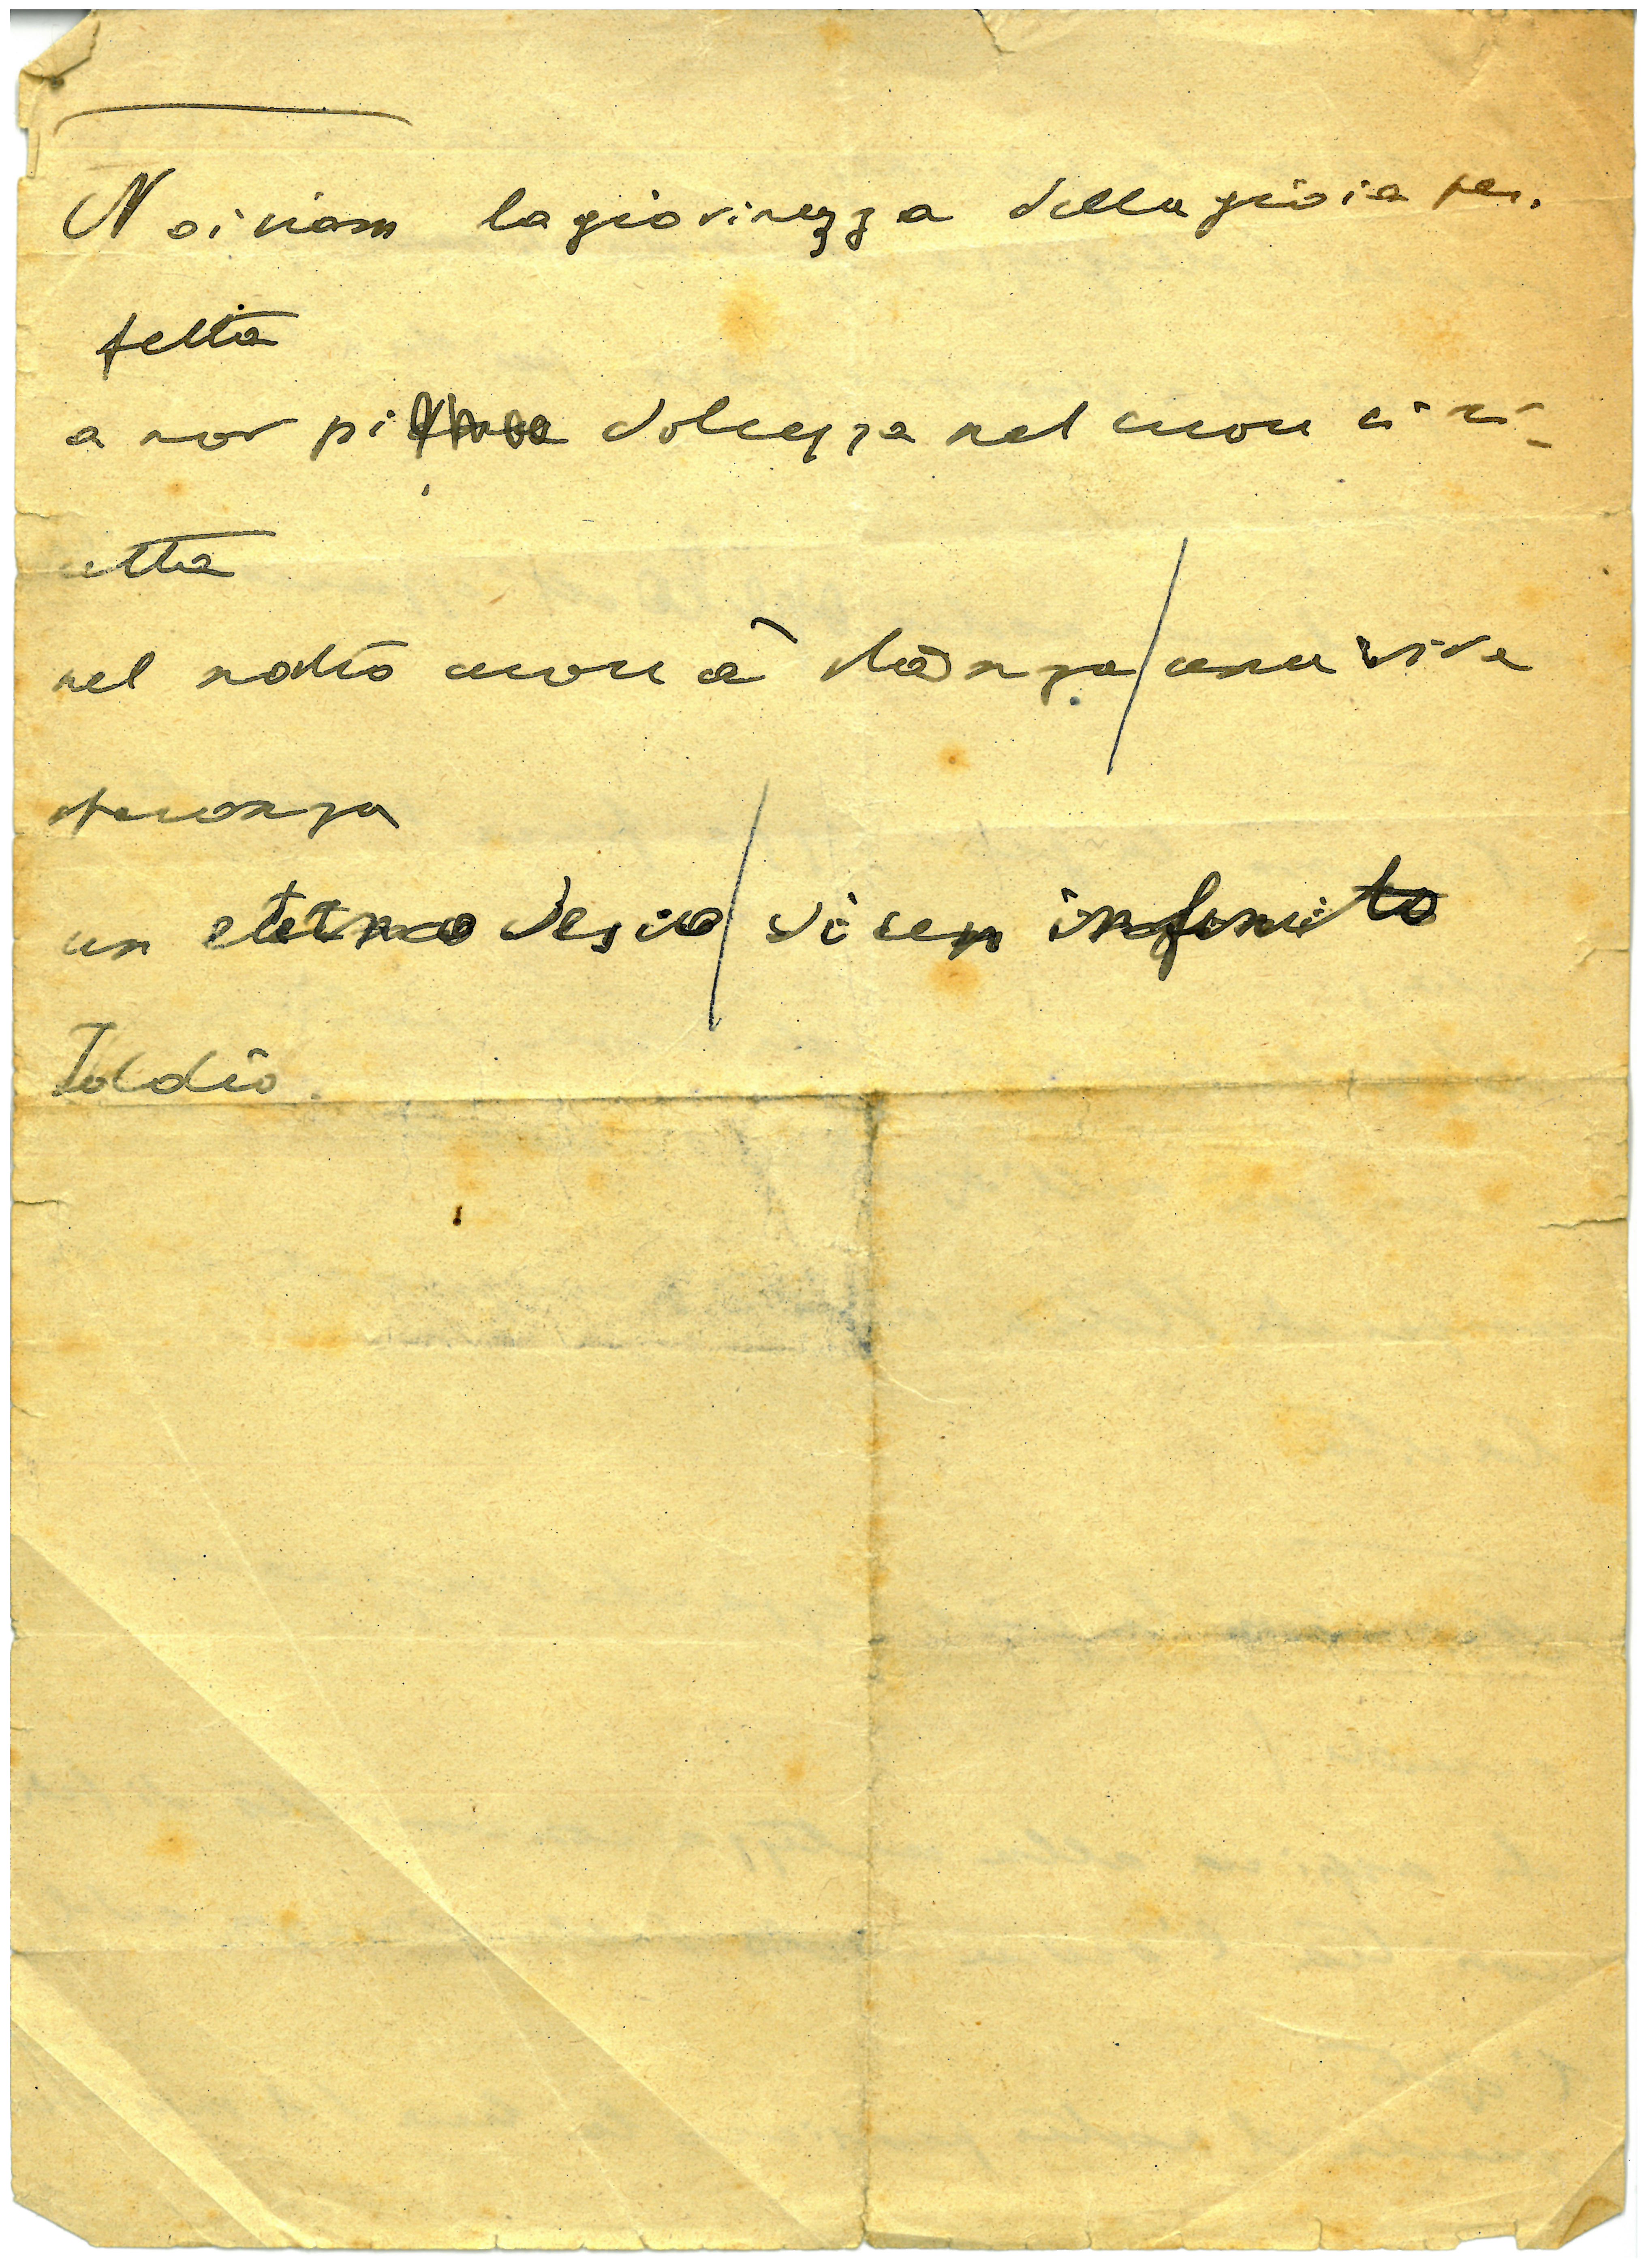 Noi siam la giovinezza della gioia per-
fetta
a noi più dolcezza nel cuore ci ri-
cetta
nel nostro cuore à stanza / una viva
speranza
un eterno desio / di un infinito
Iddio.